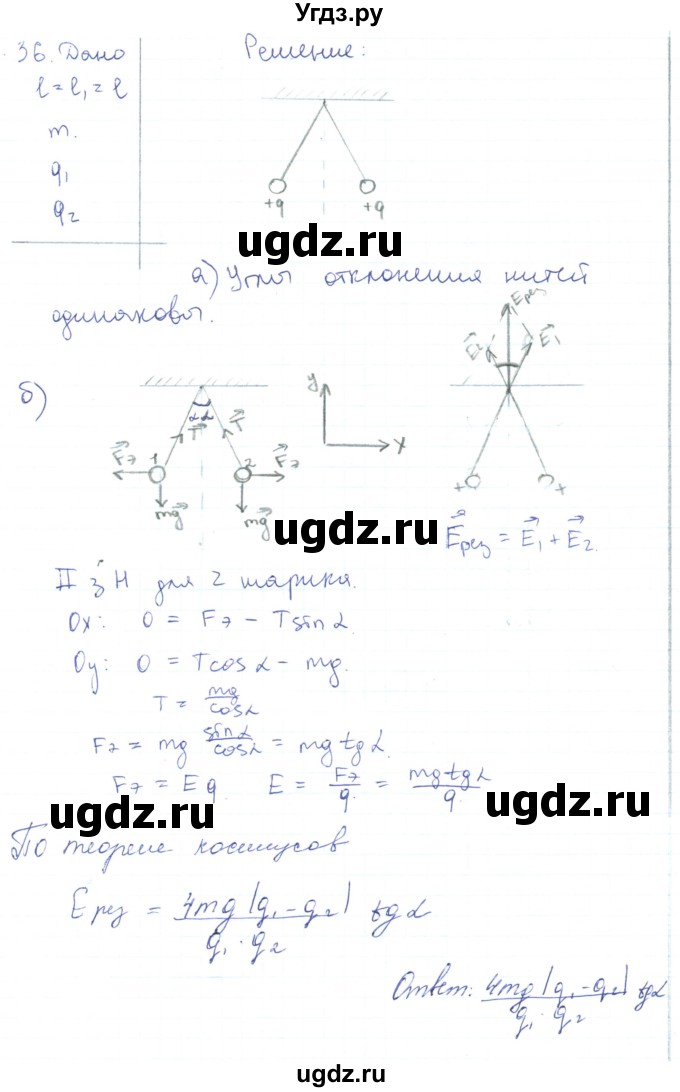 Угдз.ру
36. Дано
Решение:
l = l₁ = l
m.
q₁
q₂
+q +q
ugdz.ru
а) Углы отклонения нитей
одинаковы.
E⃗рез
E⃗₂ E⃗₁
б)
α α
T⃗ T⃗
y
x
F⃗э 1 2 F⃗э
mg⃗ mg⃗
+ +
ugdz.ru
E⃗рез = E⃗₁ + E⃗₂.
II з Н для 2 шарика.
Ox: 0 = Fэ - T sin α
Oy: 0 = T cos α - mg.
T = mg / cos α
Fэ = mg sin α / cos α = mg tg α.
Fэ = E q E = Fэ / q = mg tg α / q.
ugdz.ru
По теореме косинусов
E рез = 4mg |q₁ - q₂| / q₁ · q₂ tg α
Ответ: 4mg |q₁ - q₂| / q₁ · q₂ tg α
ugdz.ru